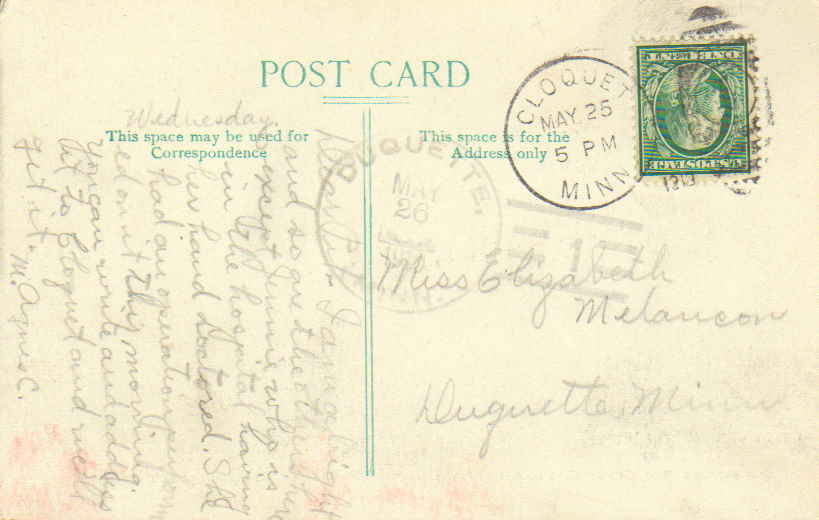 POST CARD
This space may be used for
Correspondence
This space is for the
Address only
CLOQUET
MAY. 25
5 PM
MINN.
DUQUETTE,
MAY
26
MINN.
U.S. POSTAGE
Wednesday.
I am alright
and so are the others
except Jennie who is
in the hospital having
her hand doctored. She
had an operation
ed on it this morning.
You can write and address
it to Cloquet and I will
get it.
M. Agnes C.
Miss Elizabeth
Melancon
Duquette, Minn.